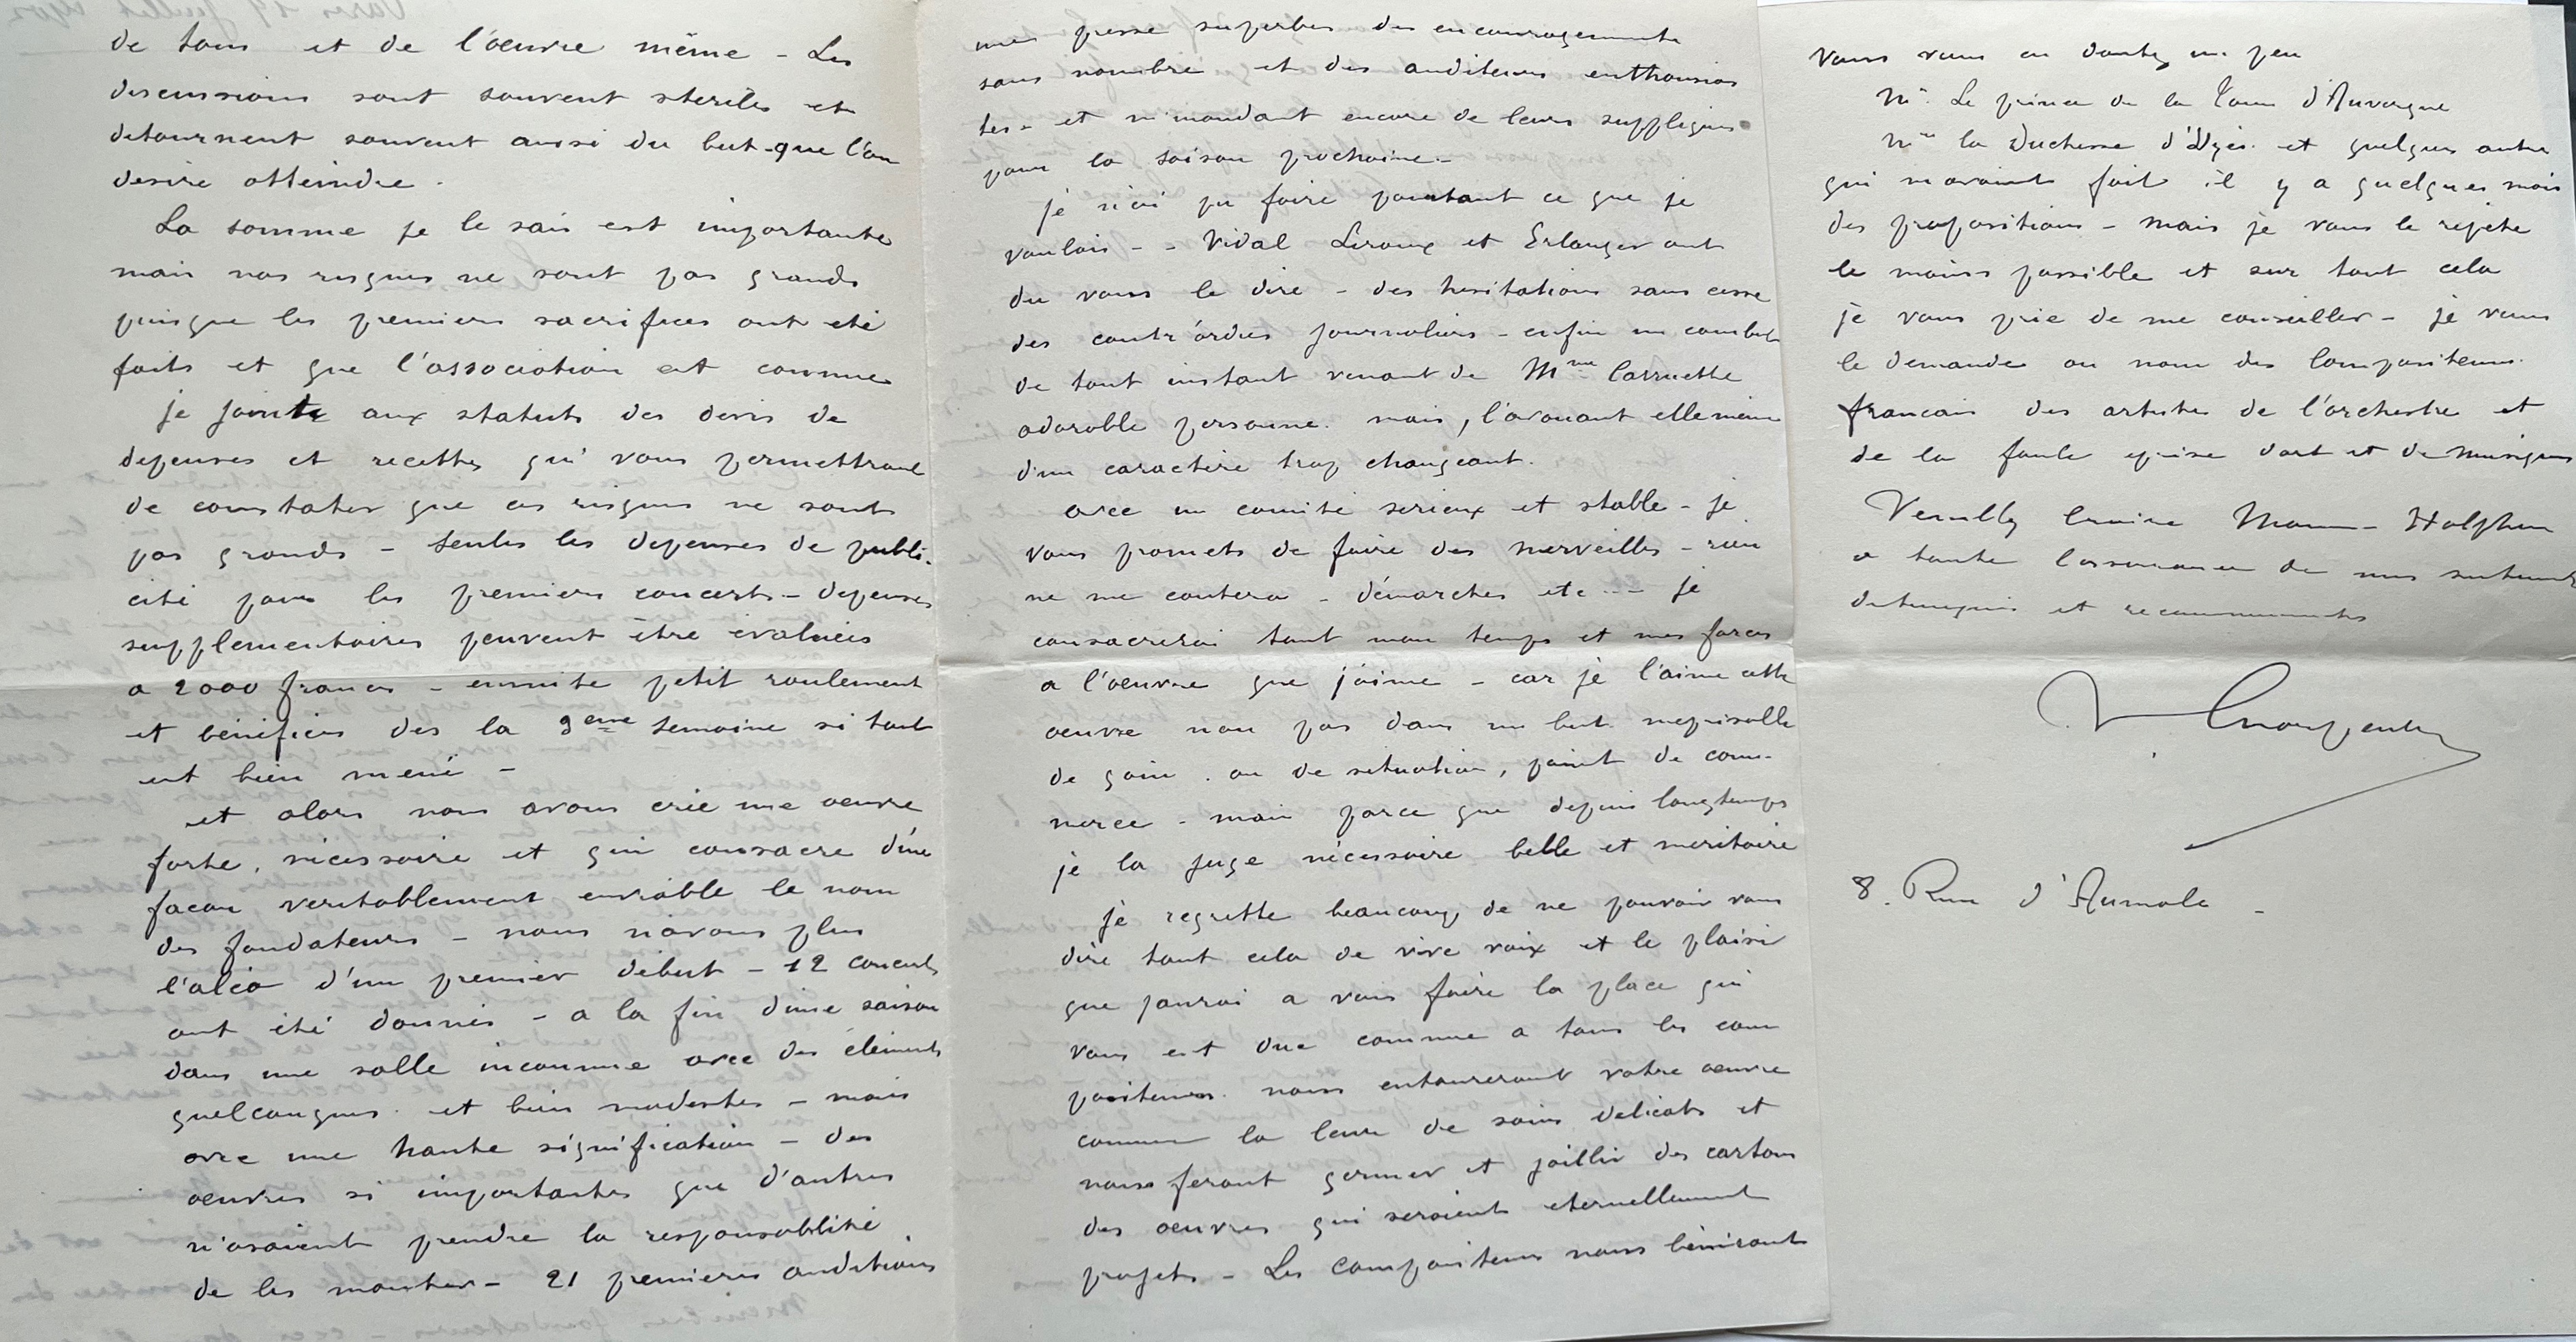 de tous et de l'oeuvre même - Les
discussions sont souvent steriles et
detournent souvent aussi du but que l'on
desire atteindre.
La somme je le sais est importante
mais nos risques ne sont pas grands
puisque les premiers sacrifices ont eté
faits et que l'association est connue
je joints aux statuts des devis de
depenses et recettes qui vous permettront
de constater que ces risques ne sont
pas grands - seules les depenses de publi-
cité pour les premiers concerts - depenses
supplementaires peuvent être évaluées
a 2000 francs - ensuite petit roulement
et bénéfices des la 3eme semaine si tout
est bien mené -
et alors nous avons crée une oeuvre
forte, nécessaire et qui consacre d'une
facon veritablement enviable le nom
des fondateurs - nous n'avons plus
l'aléa d'un premier début - 12 concerts
ont été donnés - a la fin d'une saison
dans une salle inconnue avec des élements
quelconques. et bien modestes - mais
avec une haute signification - des
oeuvres si importantes que d'autres
n'osaient prendre la responsabilité
de les monter - 21 premieres auditions
une presse superbe des encouragements
sans nombre et des auditeurs enthousias
tes - et m'inondant encore de leurs suppliques
pour la saison prochaine -
je n'ai pu faire pourtant ce que je
voulais - - Vidal Leroux et Erlanger ont
du vous le dire - des hesitations sans cesse
des contr'ordres journaliers - enfin un combat
de tout instant venant de Mme
adorable personne. mais, l'avouant elle même
d'un caractère trop changeant.
avec un comité serieux et stable - je
vous promets de faire des merveilles - rien
ne me coutera - démarches etc... - je
consacrerai tout mon temps et mes forces
a l'oeuvre que j'aime - car je l'aime cette
oeuvre non pas dans un but meprisable
de gain. ou de situation, point de com-
merce - mais parce que depuis longtemps
je la juge nécessaire belle et meritoire
je regrette beaucoup de ne pouvoir vous
dire tout cela de vive voix et le plaisir
que j'aurai a vous faire la place qui
vous est due comme a tous les com
positeurs. nous entourerons votre oeuvre
comme la leur de soins delicats et
nous ferons germer et jaillir des cartons
des oeuvres qui seraient eternellement
projets - Les compositeurs nous béniront
vous vous en doutez un peu
Mr. Le prince de la Tour d'Auvergne
Me la Duchesse d'Uzès. et quelques autres
qui m'avaient fait il y a quelques mois
des propositions - mais je vous le repète
le moins possible et sur tout cela
je vous prie de me conseiller - je vous
le demande au nom des Compositeurs.
francais des artistes de l'orchestre et
de la foule eprise d'art et de musique
Veuillez croire Halphen
a toute l'assurance de mes sentiments
distingués et reconnaissants
V Charpentier
8. Rue d'Aumale -